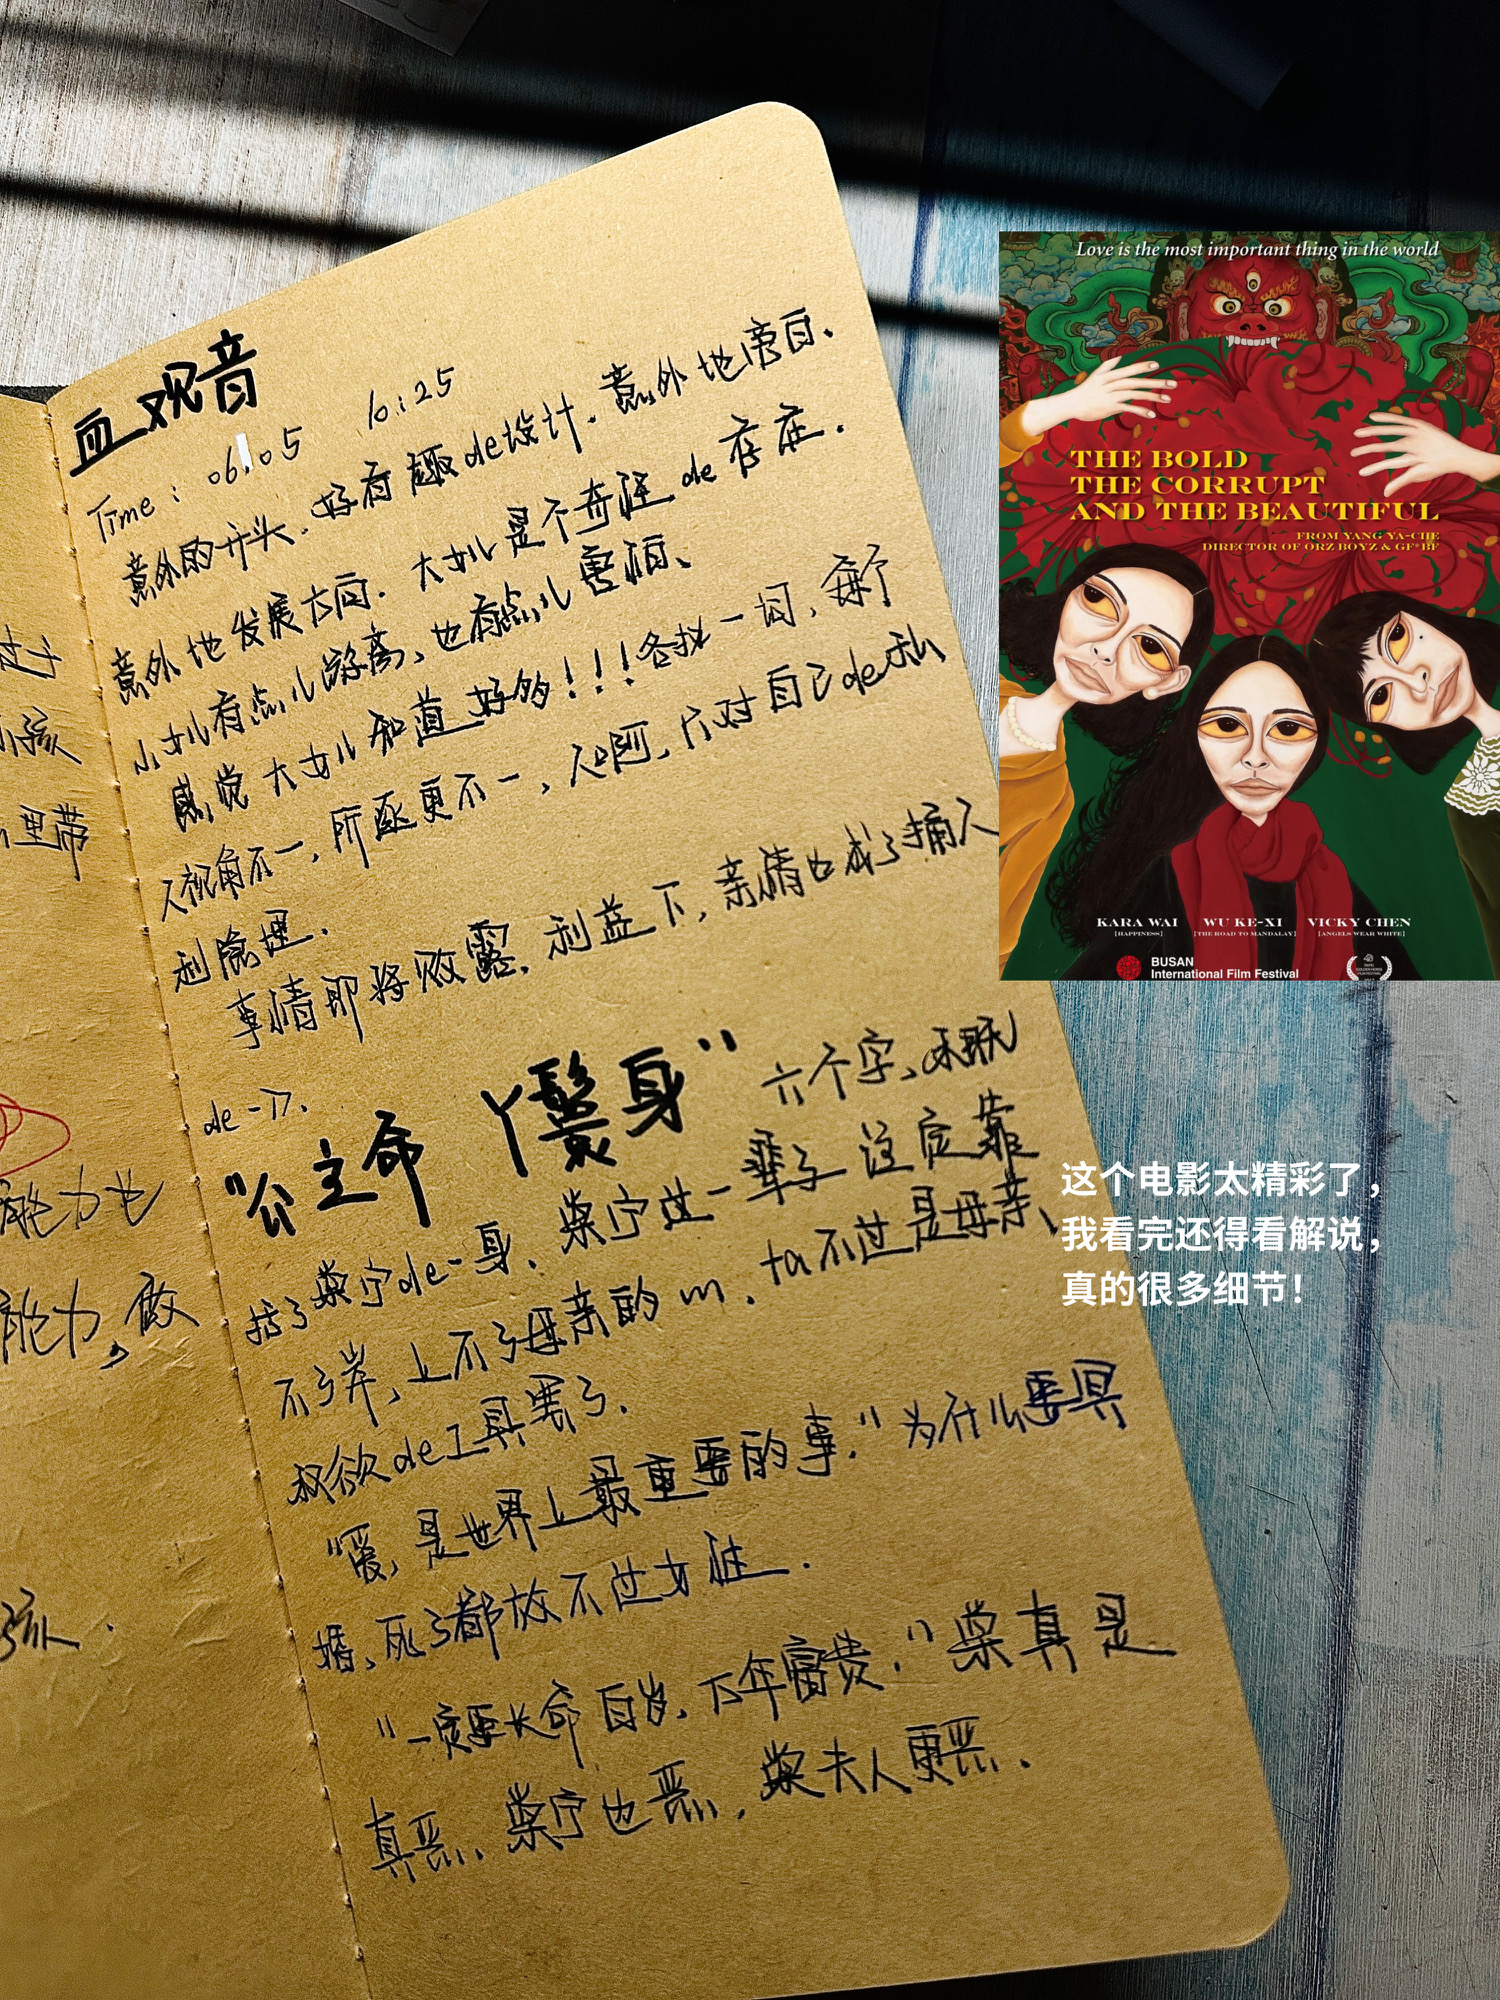 血观音
Time: 06.05 10:25
意外的开头、好有趣de设计、意外地旁白、
意外地发展方向. 大女儿是个奇怪de存在.
小女儿有点儿游离, 也有点儿害怕、
感觉大女儿知道好多!!! 各执一词, 每个
人视角不一, 所 更不一, 人呐, 只对自己de私
利隐埋.
事情即将败露. 利益下, 亲情也成了捅人
de一刀.
“公主命 丫鬟身” 六个字, 概
括了棠宁de一身、棠宁这一辈子注定靠
不了岸, 上不了母亲的m. ta不过是母亲、
权欲de工具罢了.
“爱, 是世界上最重要的事.” 为什么要冥
婚, 死了都放不过女性.
“一定要长命百岁. 下年富贵.” 棠真是
真恶、棠宁也恶, 棠夫人更恶.
里带
能力也
能力, 做
Love is the most important thing in the world
THE BOLD
THE CORRUPT
AND THE BEAUTIFUL
FROM YANG YA-CHE
DIRECTOR OF ORZ BOYZ & GF*BF
KARA WAI WU KE-XI VICKY CHEN
[HAPPINESS] [THE ROAD TO MANDALAY] [ANGELS WEAR WHITE]
BUSAN
International Film Festival
这个电影太精彩了，
我看完还得看解说，
真的很多细节！